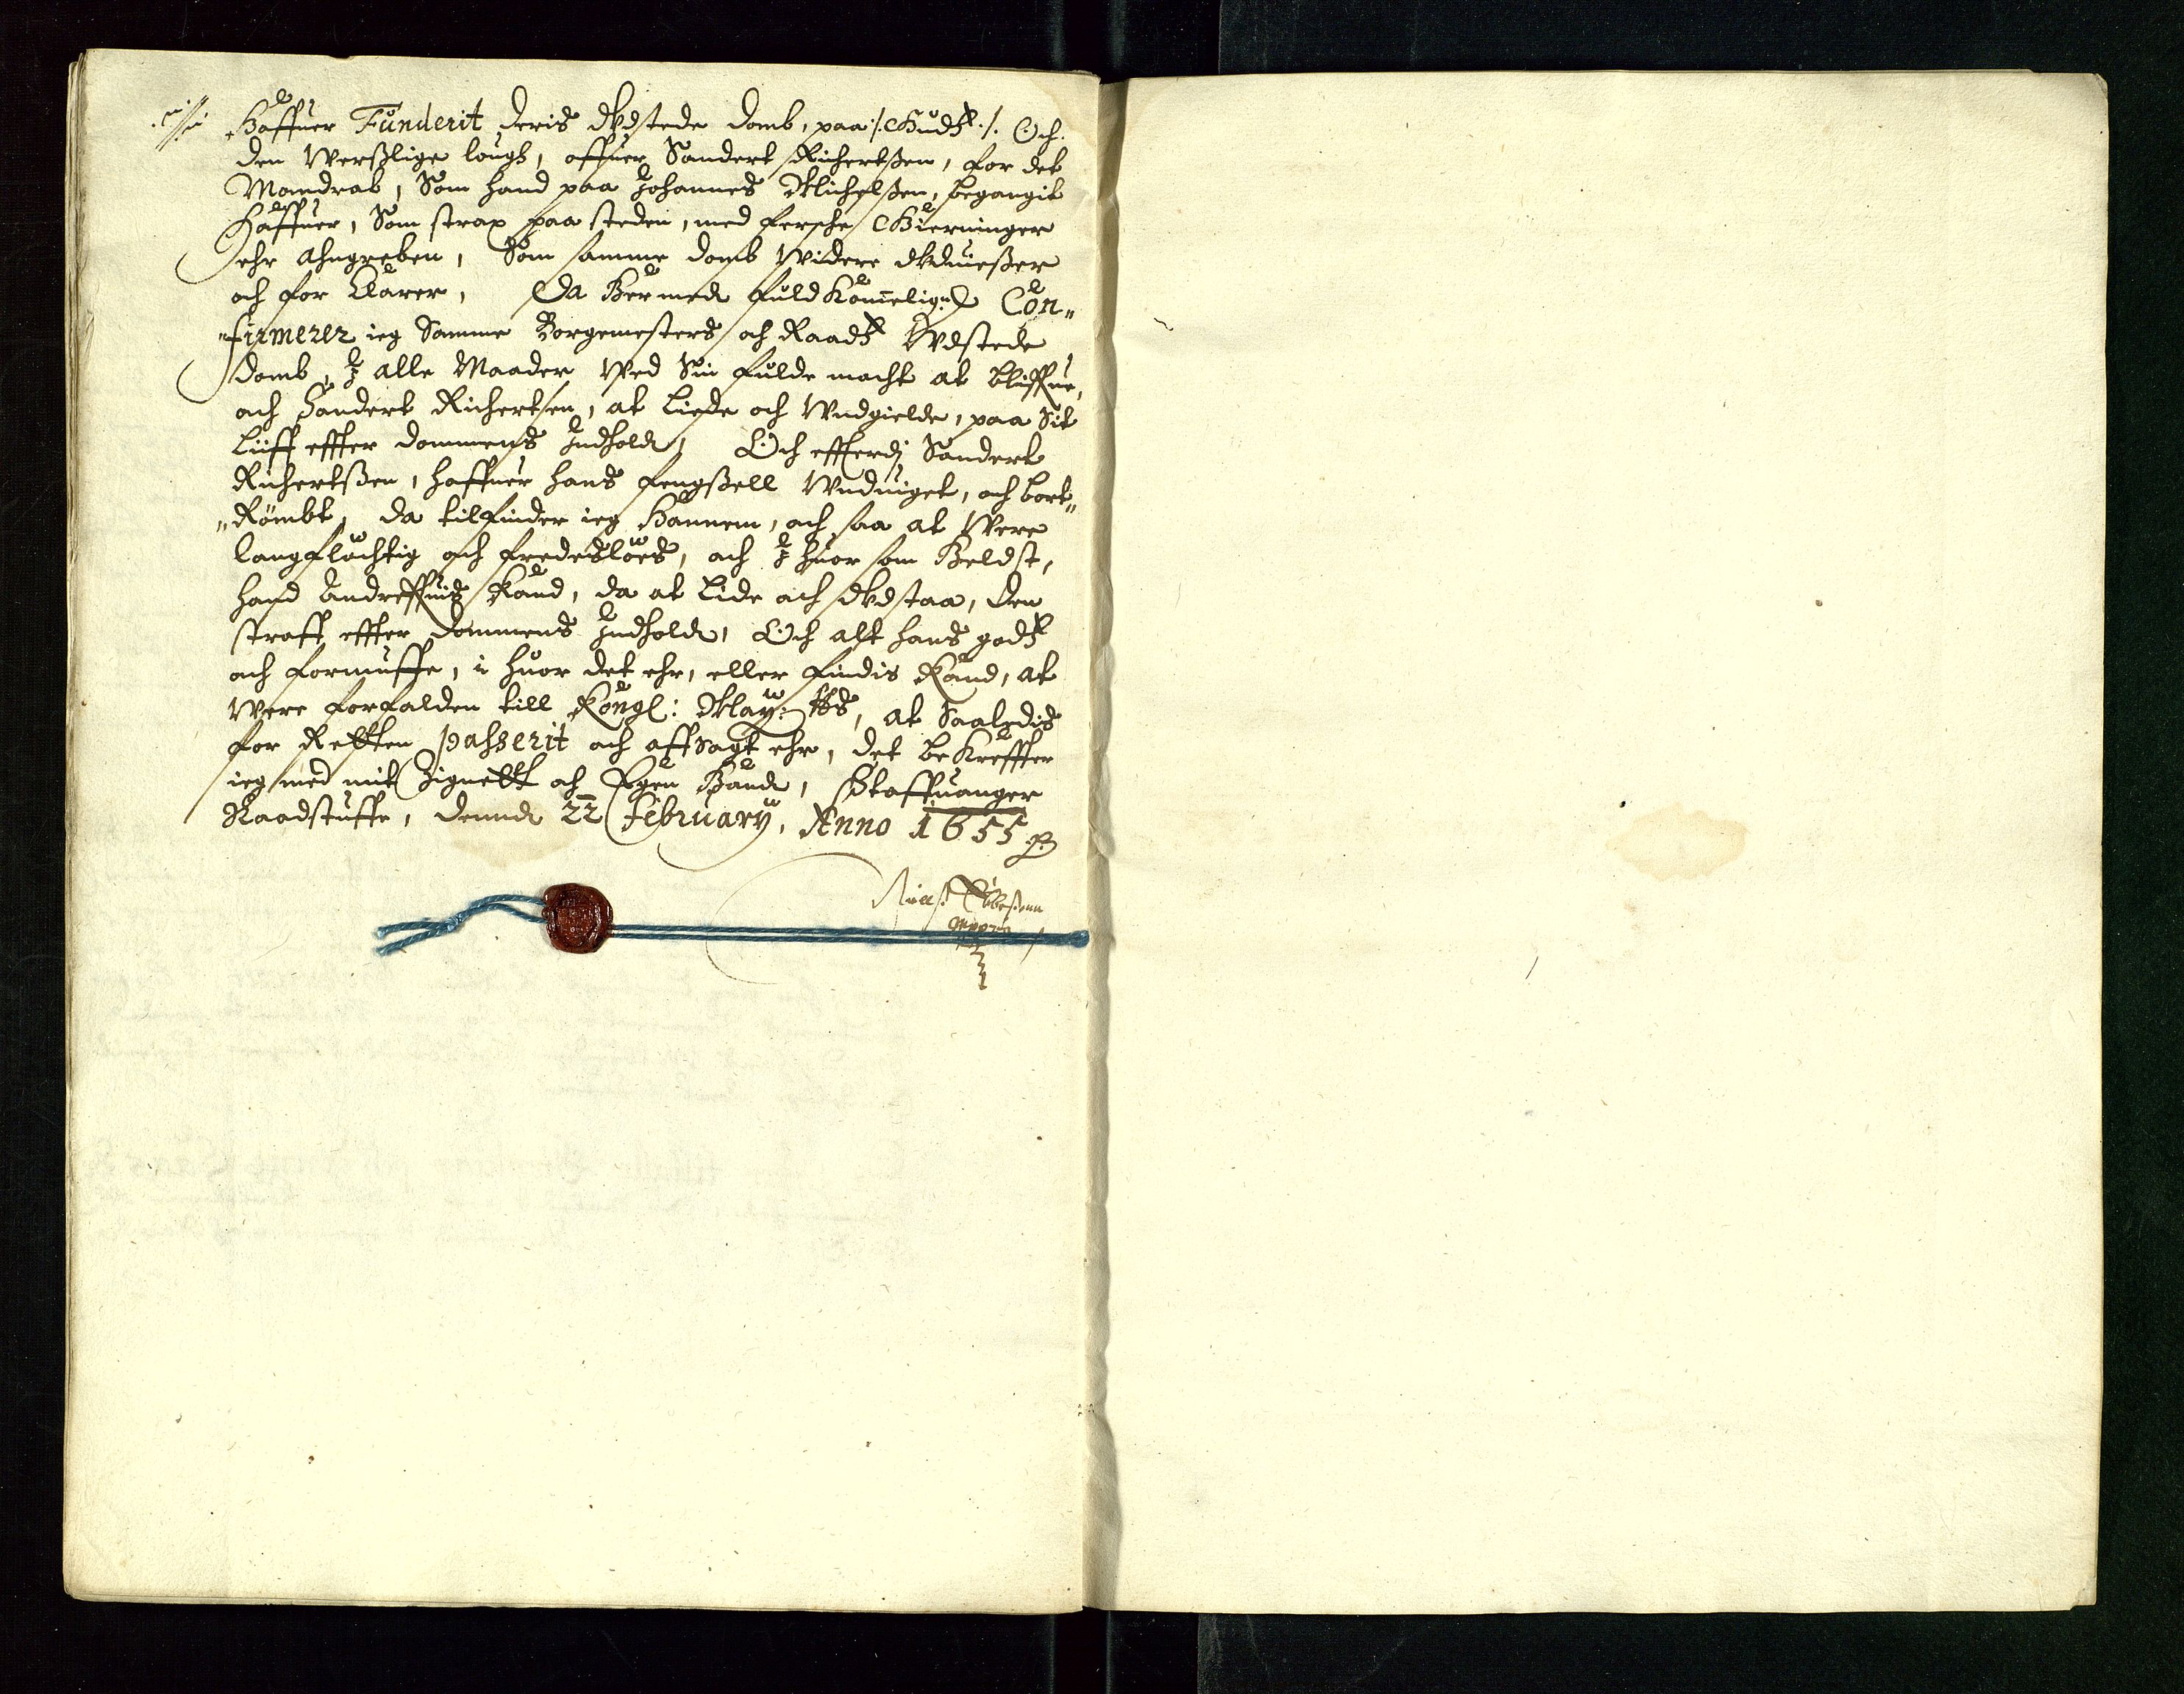 Haffuer Funderit deris Udstede domb, paa /: Gudtz :/ Och
den Werßlige lough, offuer Sandert Richertßen, for det
Mandrab, Som hand paa Johannes Michelßen, begangit
Haffuer, Som strax paa steden, med fersche Gierninger
ehr Ahngreben, Som samme domb Widere Uduießer
och for Klarer, Da Hermed fuldKommelig: Con„
„firmerer ieg Samme Borgemesters och Raadtz Udstede
domb, J alle Maader Wed Sin fulde macht at bliffue,
och Sandert Richertsen, at Liede och Undgielde, paa Sit
Liiff effter dommens Jndhold, Och efferdj Sandert
Richertßen, haffuer hans fengßell Unduiget, och bort„
„Römbt, da tilfinder ieg Hannem, och saa at Were
langflüchtig och fredesløes, och J huor som Heldst,
hand Andreffuis Kand, da at Lide och Udstaa, den
straff effter dommens Jndhold, Och alt hans godtz
och formuffe, i huor det ehr, eller findis Kand, at
Were forfalden till Kongl: May: tts, at Saaledis
for Retten passerit och affsagt ehr, det beKreffter
ieg med mit Zignett och Egen Haand, Staffuanger
Raadstuffe, dennd 22 February, Anno 1655
Ebbeßenn